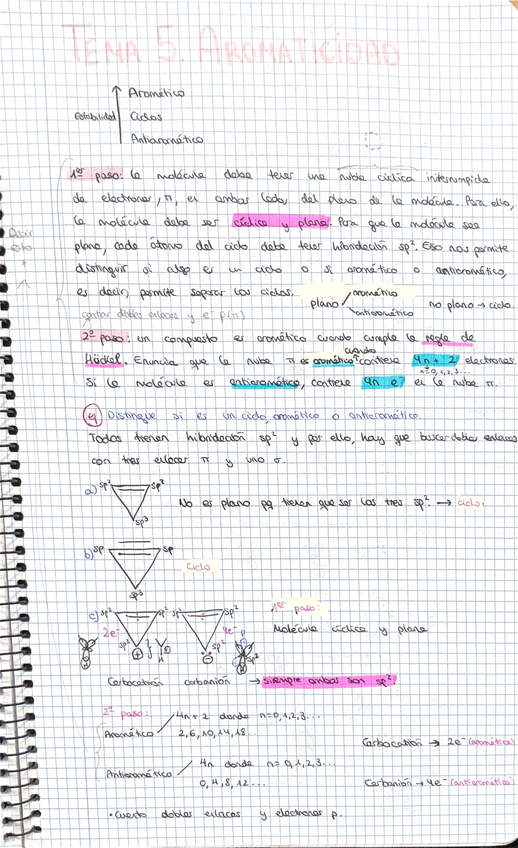 TEMA 5. AROMATICIDAD
Estabilidad
Aromático
Ciclos
Antiaromático
1er paso: la molécula debe tener una nube cíclica ininterrumpida
de electrones, π, en ambos lados del plano de la molécula. Para ello,
la molécula debe ser cíclica y plana. Para que la molécula sea
plana, cada átomo del ciclo debe tener hibridación sp². Eso nos permite
distinguir si algo es un ciclo o si aromático o antiaromático,
es decir, permite separar los ciclos.
plano
aromático
antiaromático
no plano → ciclo
Decir esto
contar dobles enlaces y e⁻ p (π)
2º paso: un compuesto es aromático cuando cumple la regla de
Hückel. Enuncia que la nube π es aromático cuando contiene 4n + 2 electrones.
n=0,1,2,3...
Si la molécula es antiaromática, contiene 4n e⁻ en la nube π.
ej Distingue si es un ciclo, aromático o antiaromático.
Todos tienen hibridación sp² y por ello, hay que buscar dobles enlaces
con tres enlaces π y uno σ.
a) sp² sp²
sp³
No es plano pq tienen que ser los tres sp². → ciclo.
b) sp sp
sp³
ciclo
c) sp² sp² sp² sp²
2e⁻ sp² 4e⁻ sp² p
H H H
1er paso:
Molécula cíclica y plana
Carbocatión carbanión → siempre ambos son sp².
2º paso:
Aromático
4n + 2 donde n=0,1,2,3...
2,6,10,14,18...
Antiaromático
4n donde n=0,1,2,3...
0,4,8,12...
Carbocatión → 2e⁻ (aromático)
Carbanión → 4e⁻ (antiaromático)
• Cuento dobles enlaces y electrones p.